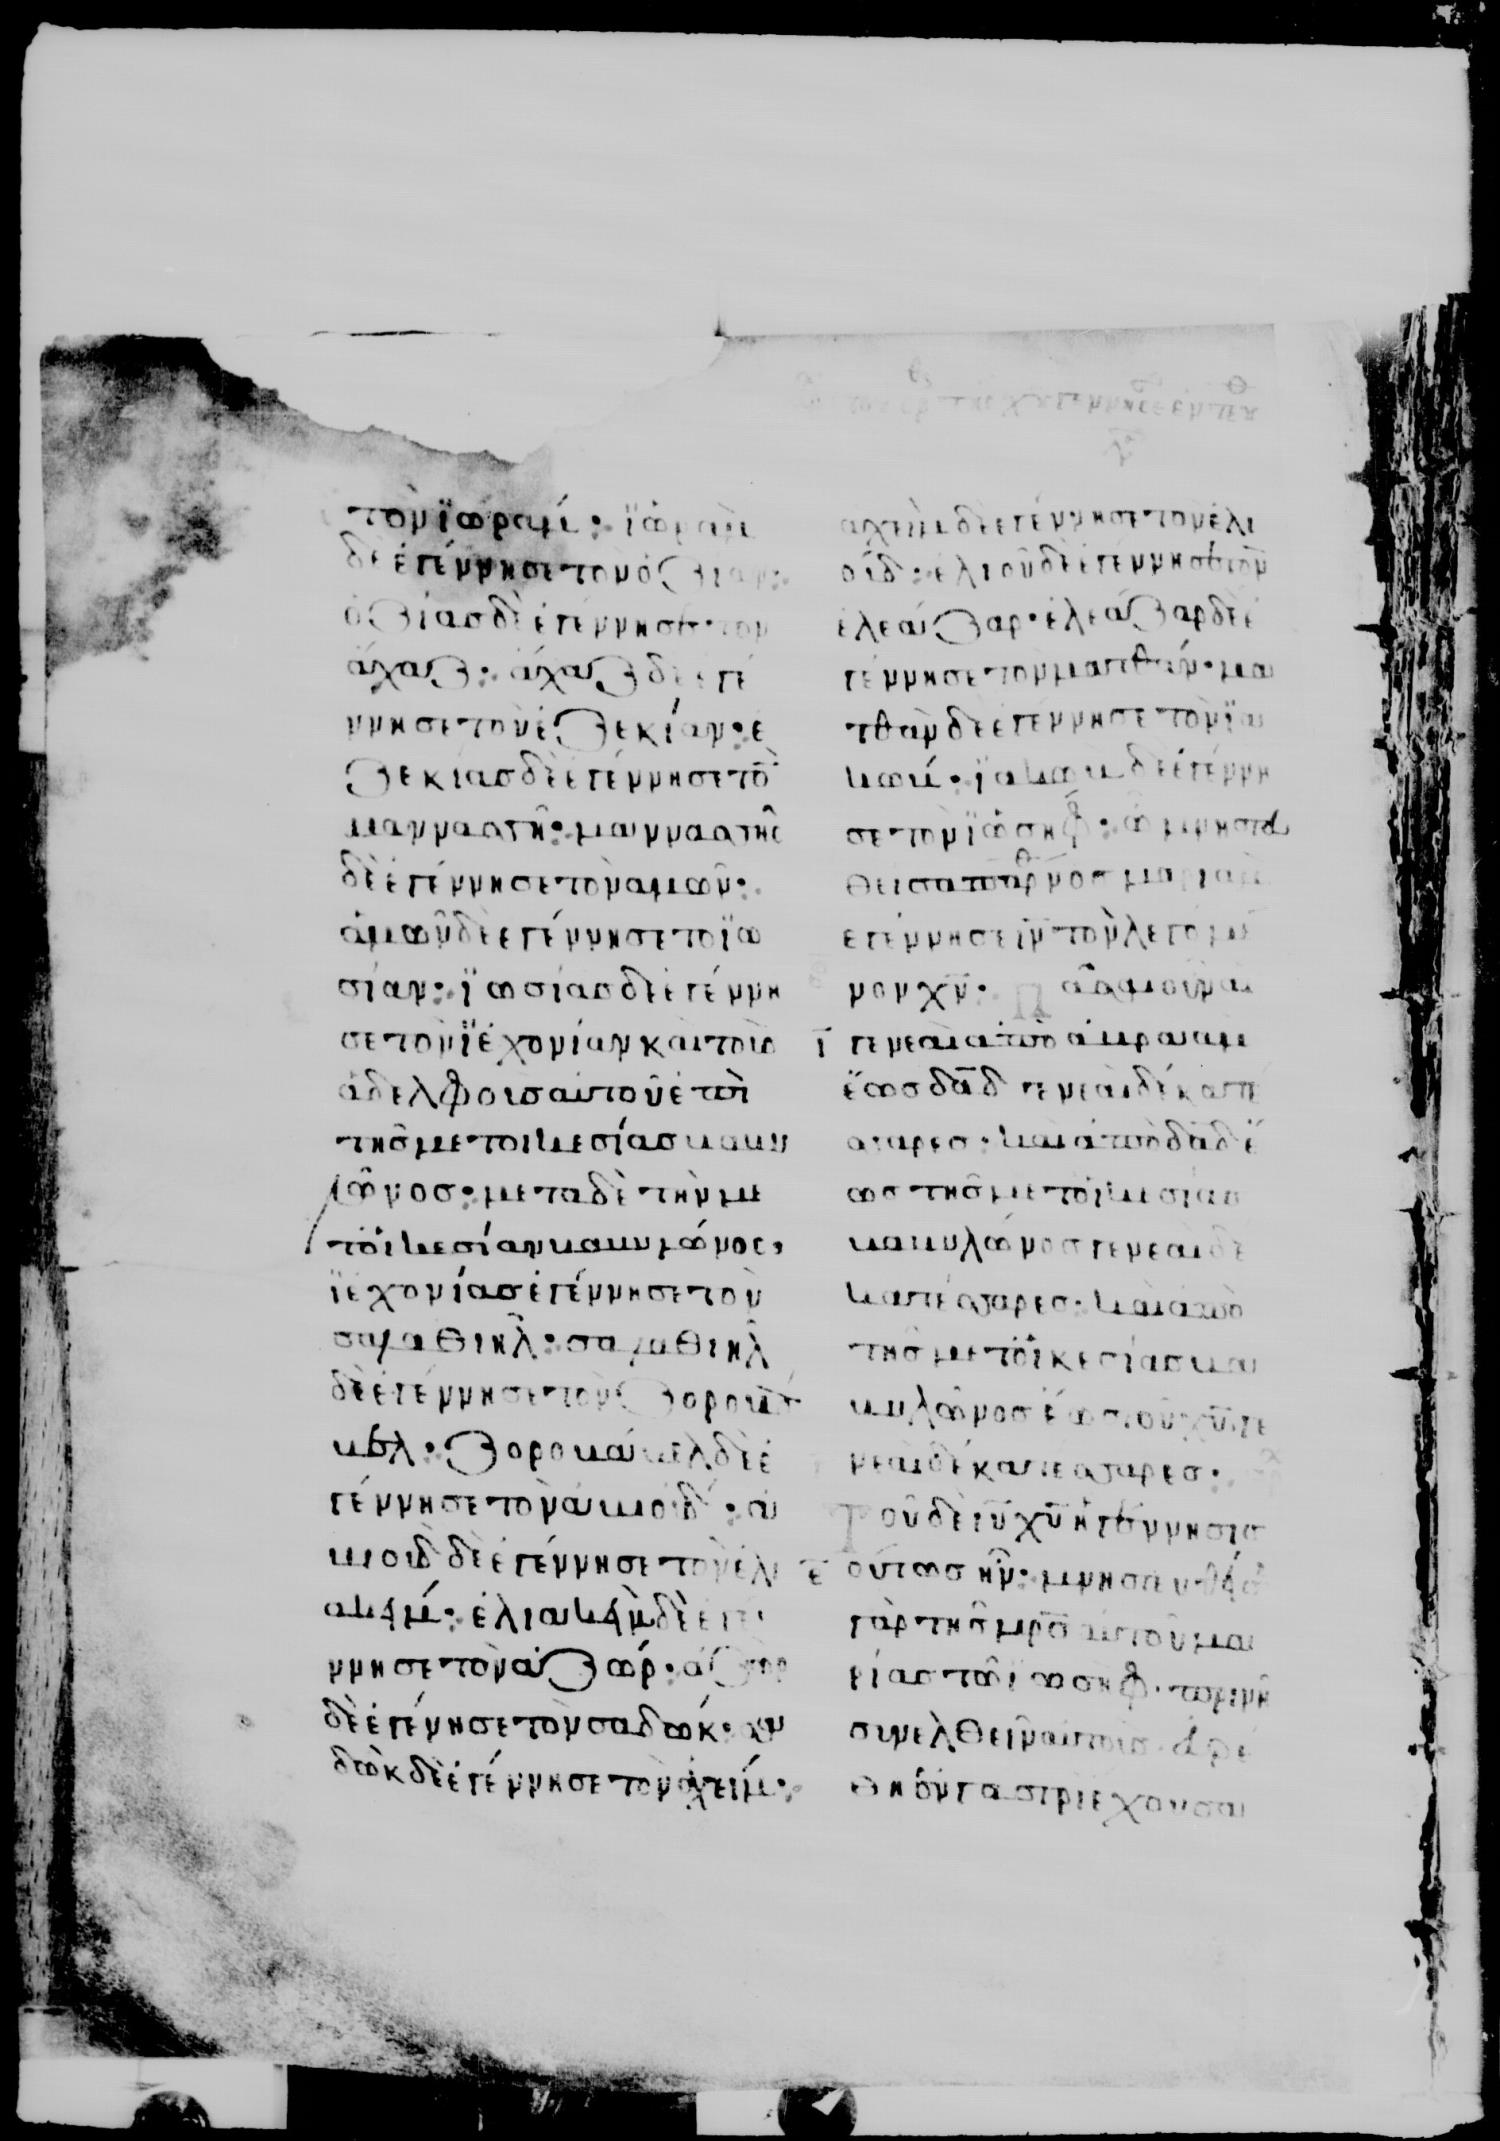 τὸν ϊωραμ· ϊωραμ
δὲ ἐγέννησε τὸν ὀζίαν·
ὀζίας δὲ ἐγέννησε τον
ἄχαζ· ἄχαζ δὲ ἐγέ
ννησε τὸν ἐζεκίαν· ἐ
ζεκίας δὲ ἐγέννησε τὸ̄
μαννασῆ· μαννασῆς
δὲ ἐγέννησε τὸν αμῶν·
ἀμῶν δὲ εγέννησε το ϊω
σίαν· ϊωσίας δὲ ἐγέννη
σε τὸν ϊἐχονίαν και τοὺς
ἀδελφοὺς αὐτοῦ ἐπὶ
τῆς μετοικεσίας βαβυ
λῶνος· μετα δὲ τὴν με
τοικεσίαν βαβυλῶνος,
ϊεχονίας ἐγέννησε τὸν
σαλαθιὴλ· σαλαθιὴλ
δὲ ἐγέννησε τὸν ζοροβά
βελ· ζοροβάβελ δὲ ἐ
γέννησε τὸν ἀβιούδ· ἀ
βιοὺδ δὲ ἐγέννησε τὸν ἐλι
ακείμ· ἐλιακεὶμ δὲ ἐγέ
ννησε τὸν ἀζώρ· ἀζὼρ
δὲ ἐγέννησε τὸν σαδώκ· σα
δὼκ δὲ ἐγέννησε τὸν ἀχείμ·
αχεὶμ δὲ εγέννησε τον ἐλι
ούδ· ἐλιοῦδ δὲ ἐγέννησε τὸν
ἐλεάζαρ· ἐλεάζαρ δὲ ἐ
γέννησε τὸν ματθάν· μα
τθὰν δὲ ἐγέννησε τὸν ϊα
κώβ· ϊακὼβ δὲ ἐγέννη
σε τὸν ϊωσήφ· ὧ μνηστευ
θεισα παρθενος μαριὰμ
ἐγέννησε ιν τὸν λεγόμε
νον χν· Πᾶσαι οὖν αἱ
γενεαὶ ἀπὸ ἁβραὰμ
ἕως δαδ γενεαὶ δέκατέ
σσαρες· καὶ ἀπὸ δαδ ἕ
ως τῆς μετοικεσίας
βαβυλῶνος γενεαὶ δέ
κατέσσαρες· καὶ ἀπὸ
τῆς μετοικεσίας βα
βυλῶνος ἕως τοῦ χυ γε
νεαὶ δέκατέσσαρες·
Τοῦ δὲ ιυ χυ ἡ γέννησις
οὕτως ἦν· μνηστευθείσης
γὰρ τῆς μρς αὐτοῦ μα
ρίας τῷ ἰωσήφ· πρινὴ
συνελθεῖν αὐτοὺς εὑρέ
θη ἐν γαστρὶ ἔχουσα